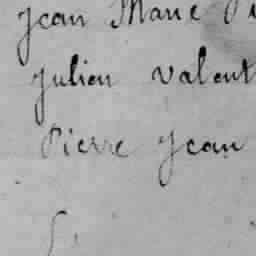 Jean Marie
Julien Valent
Pierre Jean